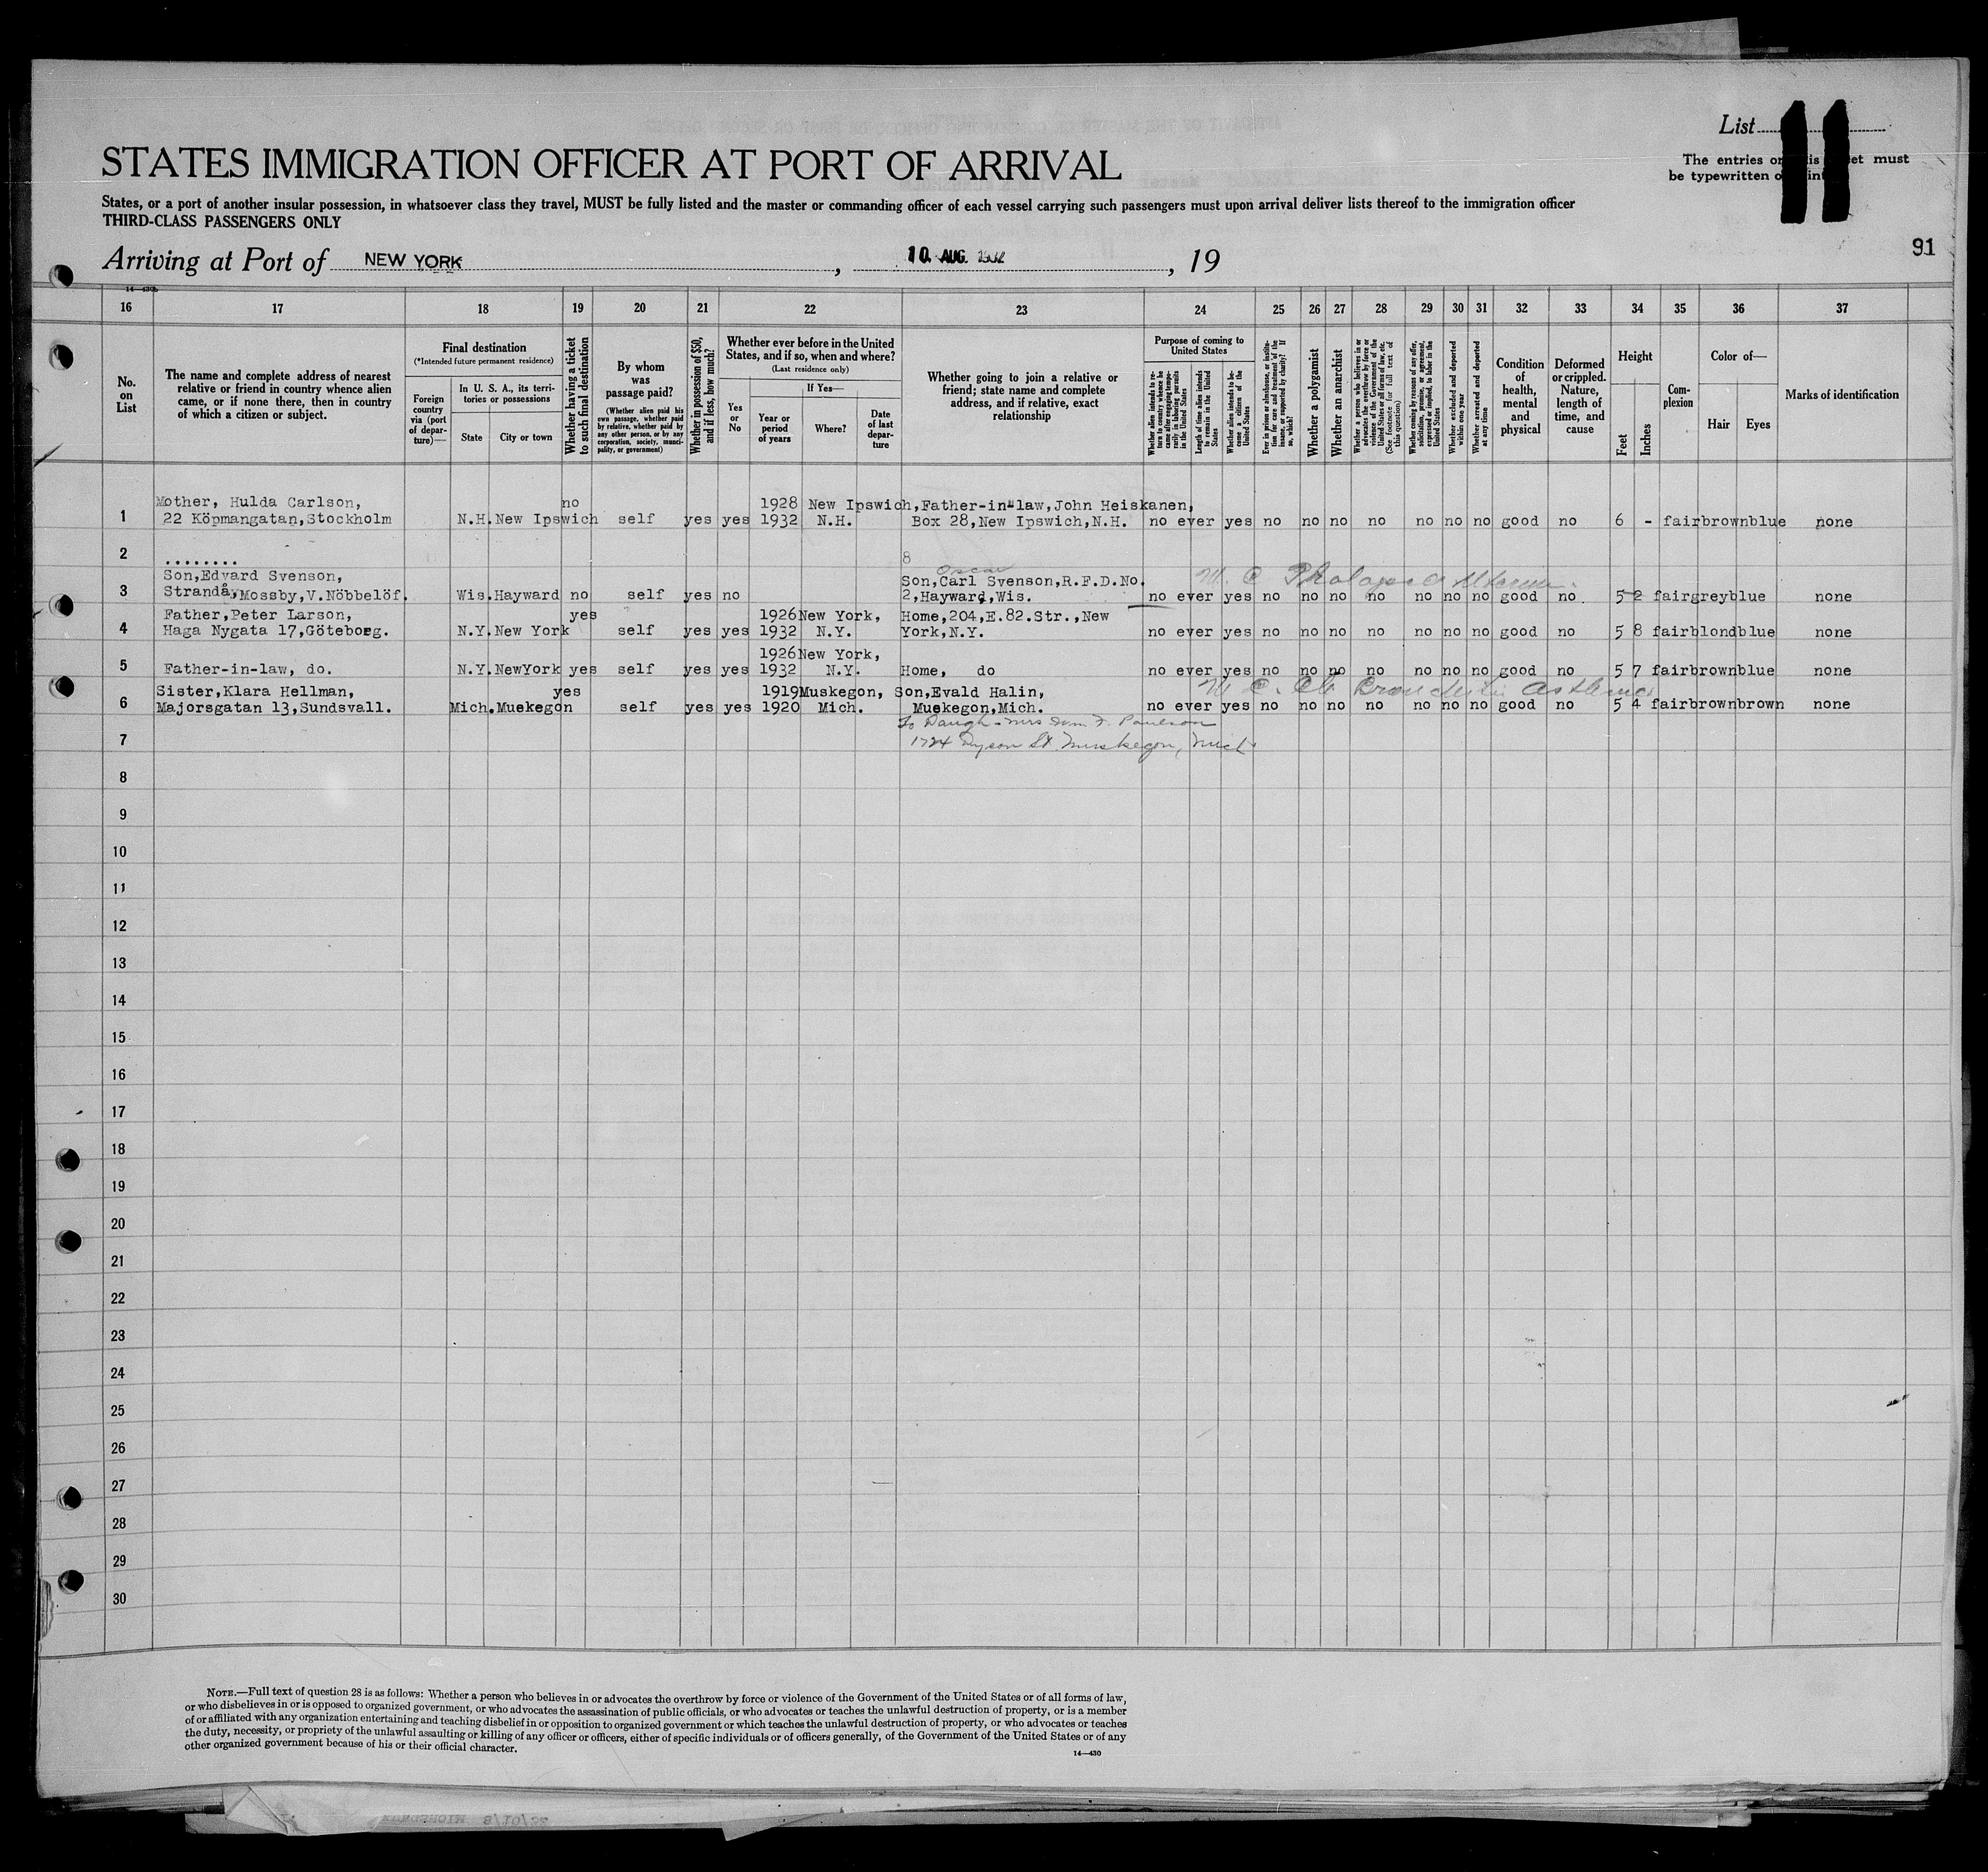 List 11
STATES IMMIGRATION OFFICER AT PORT OF ARRIVAL
The entries on this sheet must
be typewritten or
States, or a port of another insular possession, in whatsoever class they travel, MUST be fully listed and the master or commanding officer of each vessel carrying such passengers must upon arrival deliver lists thereof to the immigration officer
THIRD-CLASS PASSENGERS ONLY
Arriving at Port of NEW YORK, 10. AUG. 1932, 19
91
14—430b
16 17 18 19 20 21 22 23 24 25 26 27 28 29 30 31 32 33 34 35 36 37
No. on List
The name and complete address of nearest relative or friend in country whence alien came, or if none there, then in country of which a citizen or subject.
Final destination
(*Intended future permanent residence)
Foreign country via (port of departure)—
In U. S. A., its territories or possessions
State
City or town
Whether having a ticket to such final destination
By whom was passage paid?
(Whether alien paid his own passage, whether paid by relative, whether paid by any other person, or by any corporation, society, municipality, or government)
Whether in possession of $50, and if less, how much?
Whether ever before in the United States, and if so, when and where?
(Last residence only)
Yes or No
If Yes—
Year or period of years
Where?
Date of last departure
Whether going to join a relative or friend; state name and complete address, and if relative, exact relationship
Purpose of coming to United States
Whether alien intends to return to country whence he came after engaging temporarily in laboring pursuits in the United States
Length of time alien intends to remain in the United States
Whether alien intends to become a citizen of the United States
Ever in prison or almshouse, or institution for care and treatment of the insane, or supported by charity? If so, which?
Whether a polygamist
Whether an anarchist
Whether a person who believes in or advocates the overthrow by force or violence of the Government of the United States or all forms of law, etc. (See footnote for full text of this question)
Whether coming by reason of any offer, solicitation, promise, or agreement, expressed or implied, to labor in the United States
Whether excluded and deported within one year
Whether arrested and deported at any time
Condition of health, mental and physical
Deformed or crippled. Nature, length of time, and cause
Height
Feet
Inches
Complexion
Color of—
Hair
Eyes
Marks of identification
Mother, Hulda Carlson, no 1928 New Ipswich, Father-in-law, John Heiskanen,
1 22 Köpmangatan, Stockholm N.H. New Ipswich self yes yes 1932 N.H. Box 28, New Ipswich, N.H. no ever yes no no no no no no no good no 6 - fair brown blue none
2 ........ 8
Oscar
Son, Edvard Svenson, Son, Carl Svenson, R.F.D. No. M. C
3 Strandå, Mossby, V. Nöbbelöf. Wis. Hayward no self yes no 2, Hayward, Wis. no ever yes no no no no no no no good no 5 2 fair grey blue none
Father, Peter Larson, yes 1926 New York, Home, 204, E. 82. Str., New
4 Haga Nygata 17, Göteborg. N.Y. New York self yes yes 1932 N.Y. York, N.Y. no ever yes no no no no no no no good no 5 8 fair blond blue none
1926 New York,
5 Father-in-law, do. N.Y. NewYork yes self yes yes 1932 N.Y. Home, do no ever yes no no no no no no no good no 5 7 fair brown blue none
Sister, Klara Hellman, yes 1919 Muskegon, Son, Evald Halin, M C. Ch Bronchitis Asthma
6 Majorsgatan 13, Sundsvall. Mich. Muskegon self yes yes 1920 Mich. Muskegon, Mich. no ever yes no no no no no no no good no 5 4 fair brown brown none
To Daugh - Mrs Wm F. Paulson
7 1724 Dyson St. Muskegon, Mich.
8
9
10
11
12
13
14
15
16
17
18
19
20
21
22
23
24
25
26
27
28
29
30
NOTE.—Full text of question 28 is as follows: Whether a person who believes in or advocates the overthrow by force or violence of the Government of the United States or of all forms of law,
or who disbelieves in or is opposed to organized government, or who advocates the assassination of public officials, or who advocates or teaches the unlawful destruction of property, or is a member
of or affiliated with any organization entertaining and teaching disbelief in or opposition to organized government or which teaches the unlawful destruction of property, or who advocates or teaches
the duty, necessity, or propriety of the unlawful assaulting or killing of any officer or officers, either of specific individuals or of officers generally, of the Government of the United States or of any
other organized government because of his or their official character.
14—430